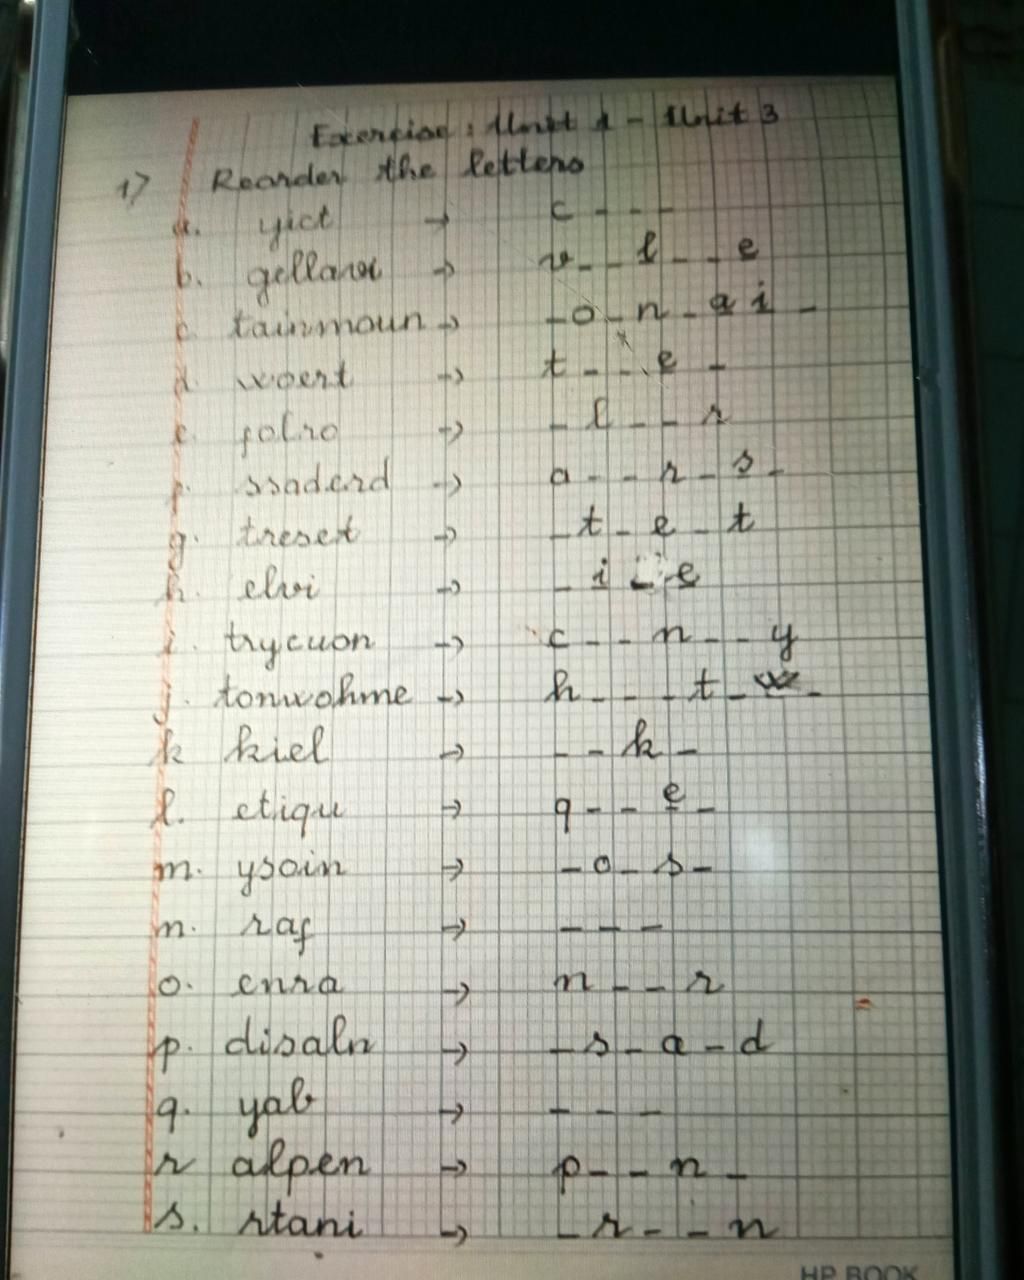 Exercise : Unit 1 - Unit 3
1) Reorder the letters
a. yict → c - - -
b. gellavi → v - - l - - e
c. tainmoun → - o - n - a i -
d. woert → t - - e -
e. folro → - l - - r
f. ssaderd → a - - r - s -
g. treset → - t - e - t
h. elvi → - i - e
i. trycuon → c - - n - - y
j. tonwohme → h - - - t - w -
k kiel → - - k -
l. etiqu → q - - e -
m. ysoin → - o - s -
n. raf → - - -
o. enra → n - - r
p. disaln → - s - a - d
q. yab → - - -
r alpen → p - - n -
s. rtani → - r - - n
HP BOOK